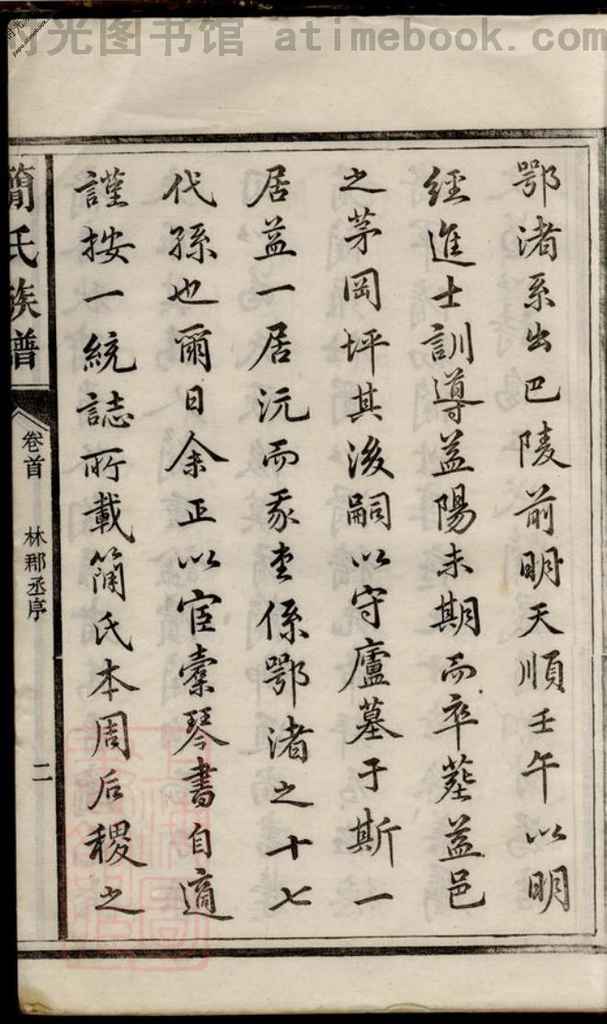 时光图书馆 atimebook.com
鄂渚系出巴陵前明天順壬午以明
經進士訓導益陽未期而卒塟益邑
之茅岡坪其後嗣以守廬墓于斯一
居益一居沅而豖查係鄂渚之十七
代孫也爾日余正以宦橐琴書自適
謹按一統誌所載簡氏本周后稷之
簡氏族譜
卷首
林郡丞序
二